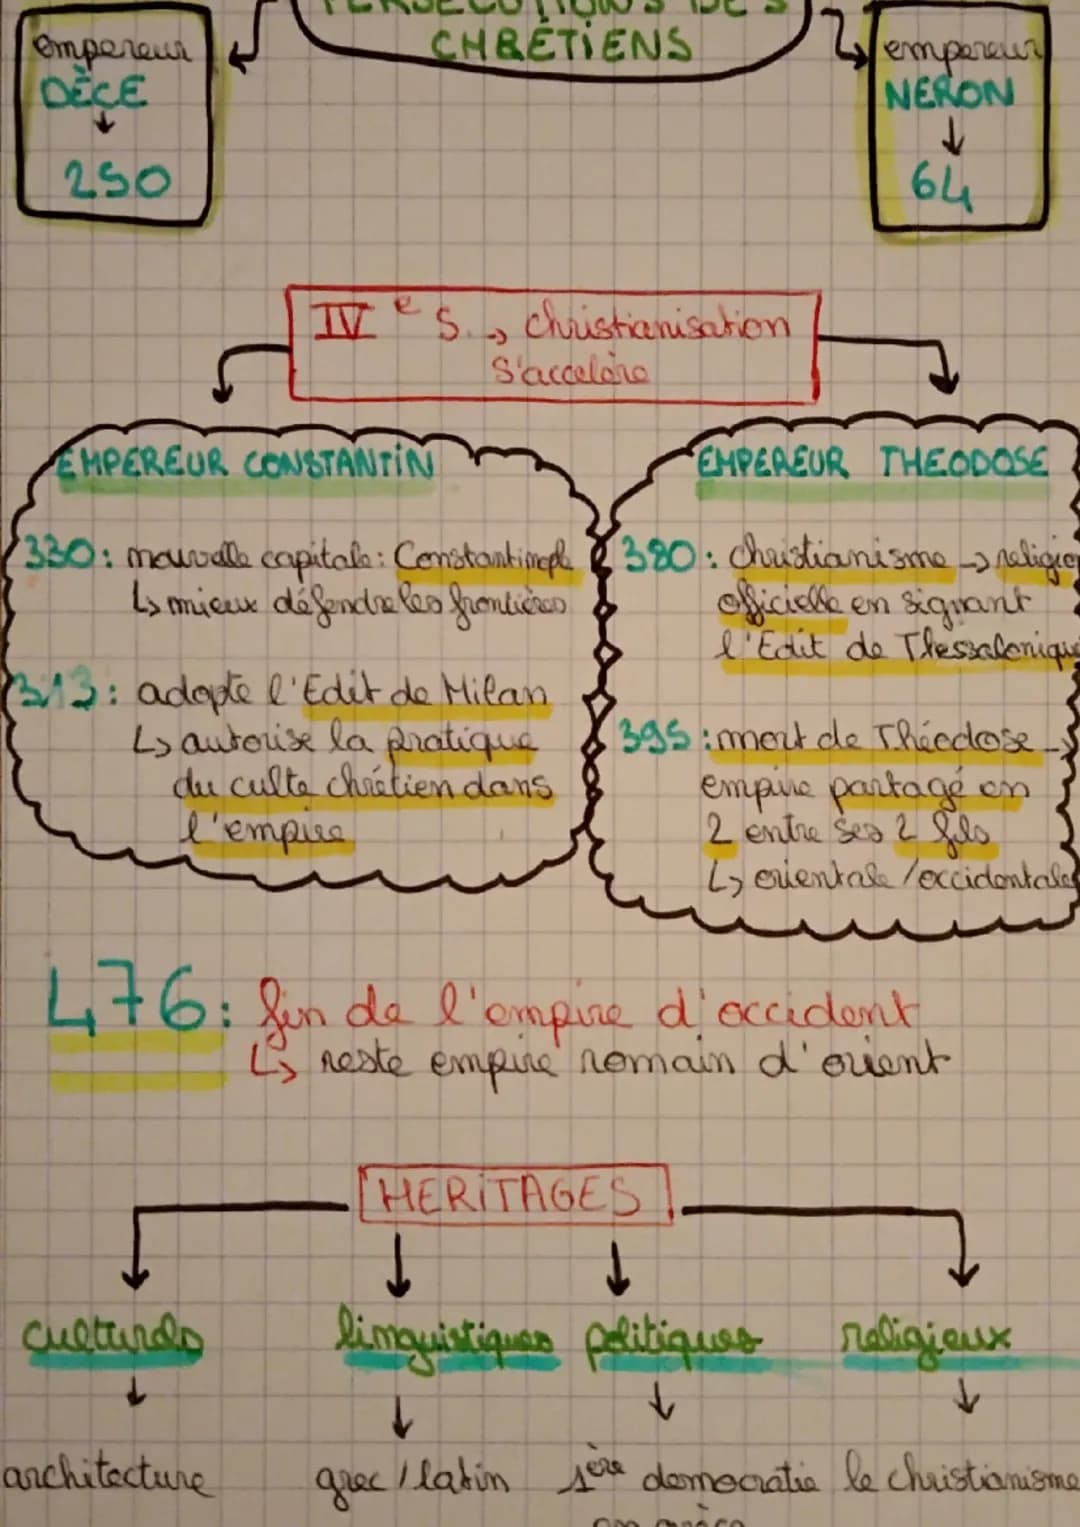 PERSECUTIONS DES
CHRÉTIENS
empereur
DÈCE
250
empereur
NERON
64
IVe s. → Christianisation
s'accelère
EMPEREUR CONSTANTIN
330 : nouvelle capitale : Constantinople
↳ mieux défendre les frontières
313 : adopte l'Edit de Milan
↳ autorise la pratique
du culte chrétien dans
l'empire
EMPEREUR THEODOSE
380 : christianisme → religion
officielle en signant
l'Edit de Thessalonique
395 : mort de Théodose →
empire partagé en
2 entre ses 2 fils
↳ orientale / occidentale
476 : fin de l'empire d'occident
↳ reste empire romain d'orient
HERITAGES
culturels
linguistiques
politiques
religieux
architecture
grec / latin
1ère democratie
le christianisme
en grèce